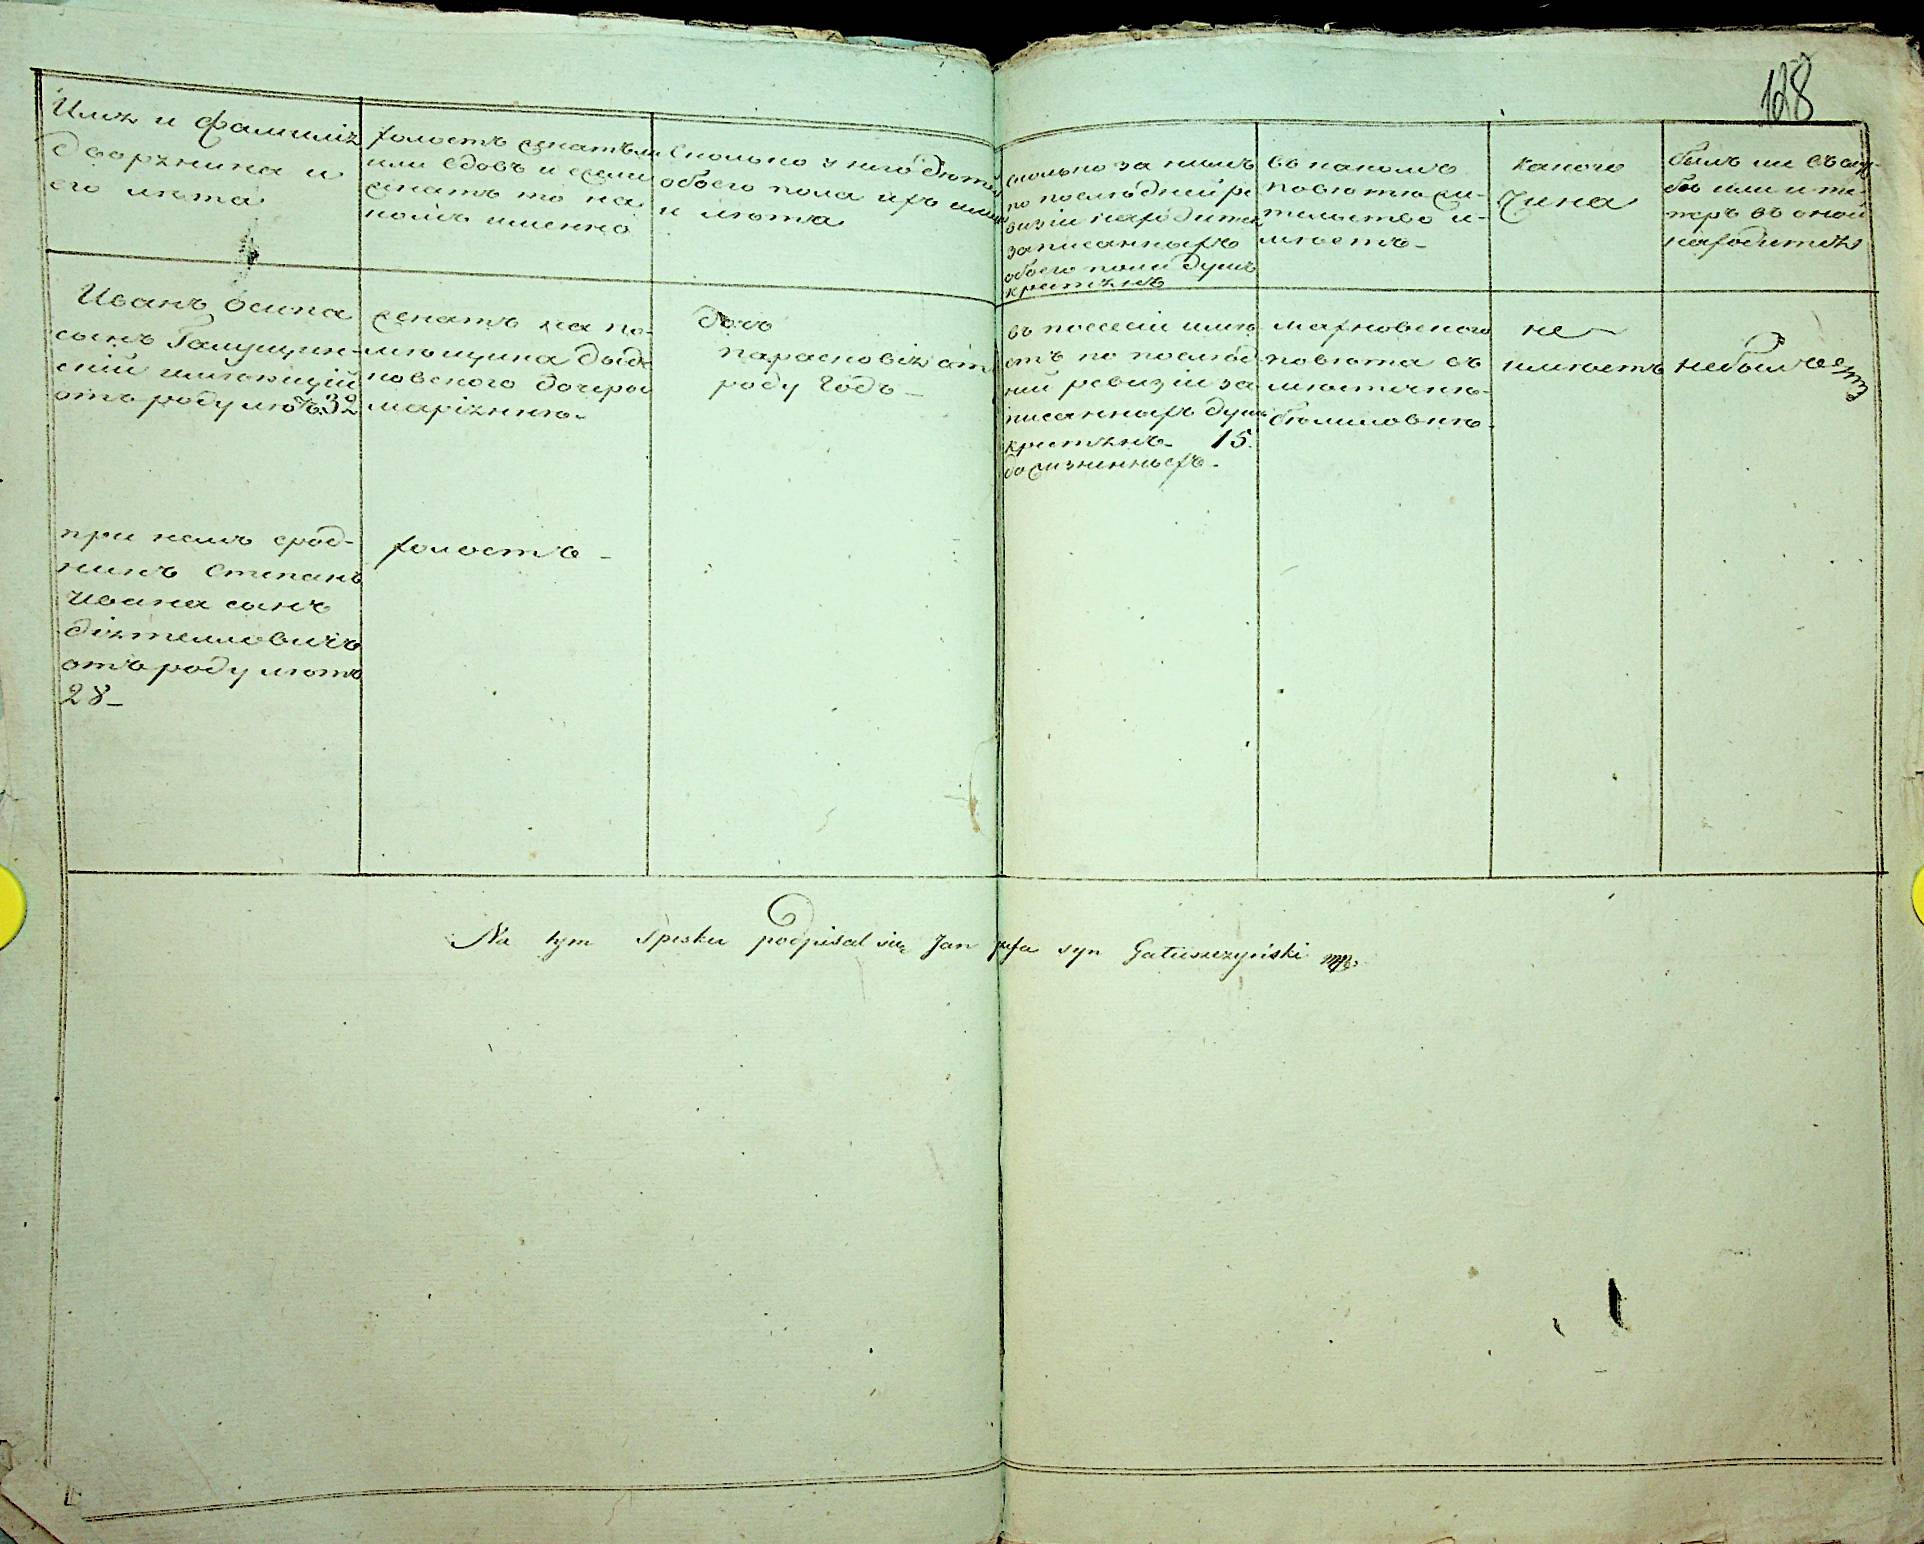 128
Имя и фамилія
дворянина и
его лѣта
холостъ женатъ ли
или вдовъ и если
женатъ то на
комъ именно
Сколько у него дѣтей
обоего пола ихъ имена
и лѣта
сколько за нимъ
по послѣдней ре
визіи находится
записанныхъ
обоего пола душъ
крестянъ
въ какомъ
повѣтѣ жи-
тельство и-
мѣетъ-
какого
чина
былъ ли въ служ-
бѣ или и те-
перь въ оной
находится
Иванъ Осипа
сынъ Галущин-
скій имѣющій
отъ роду лѣтъ 32
женатъ на по-
мѣщика Дыд-
ковского дочерѣ
маріяннѣ-
дочь
парасковія отъ
роду годъ-
въ посесіи имѣ
етъ по послѣд
ней ревизіи за
писанныхъ душъ
крестянъ- 15.
махновского
повѣта въ
мѣстечкѣ-
бѣлиловкѣ-
не
имѣетъ
небылъ
при немъ срод-
никъ Степанъ
Ивана сынъ
отъ роду лѣтъ
28-
холостъ-
Na tym Spisku podpisał się Jan Józefa syn Gałuszczyński mp